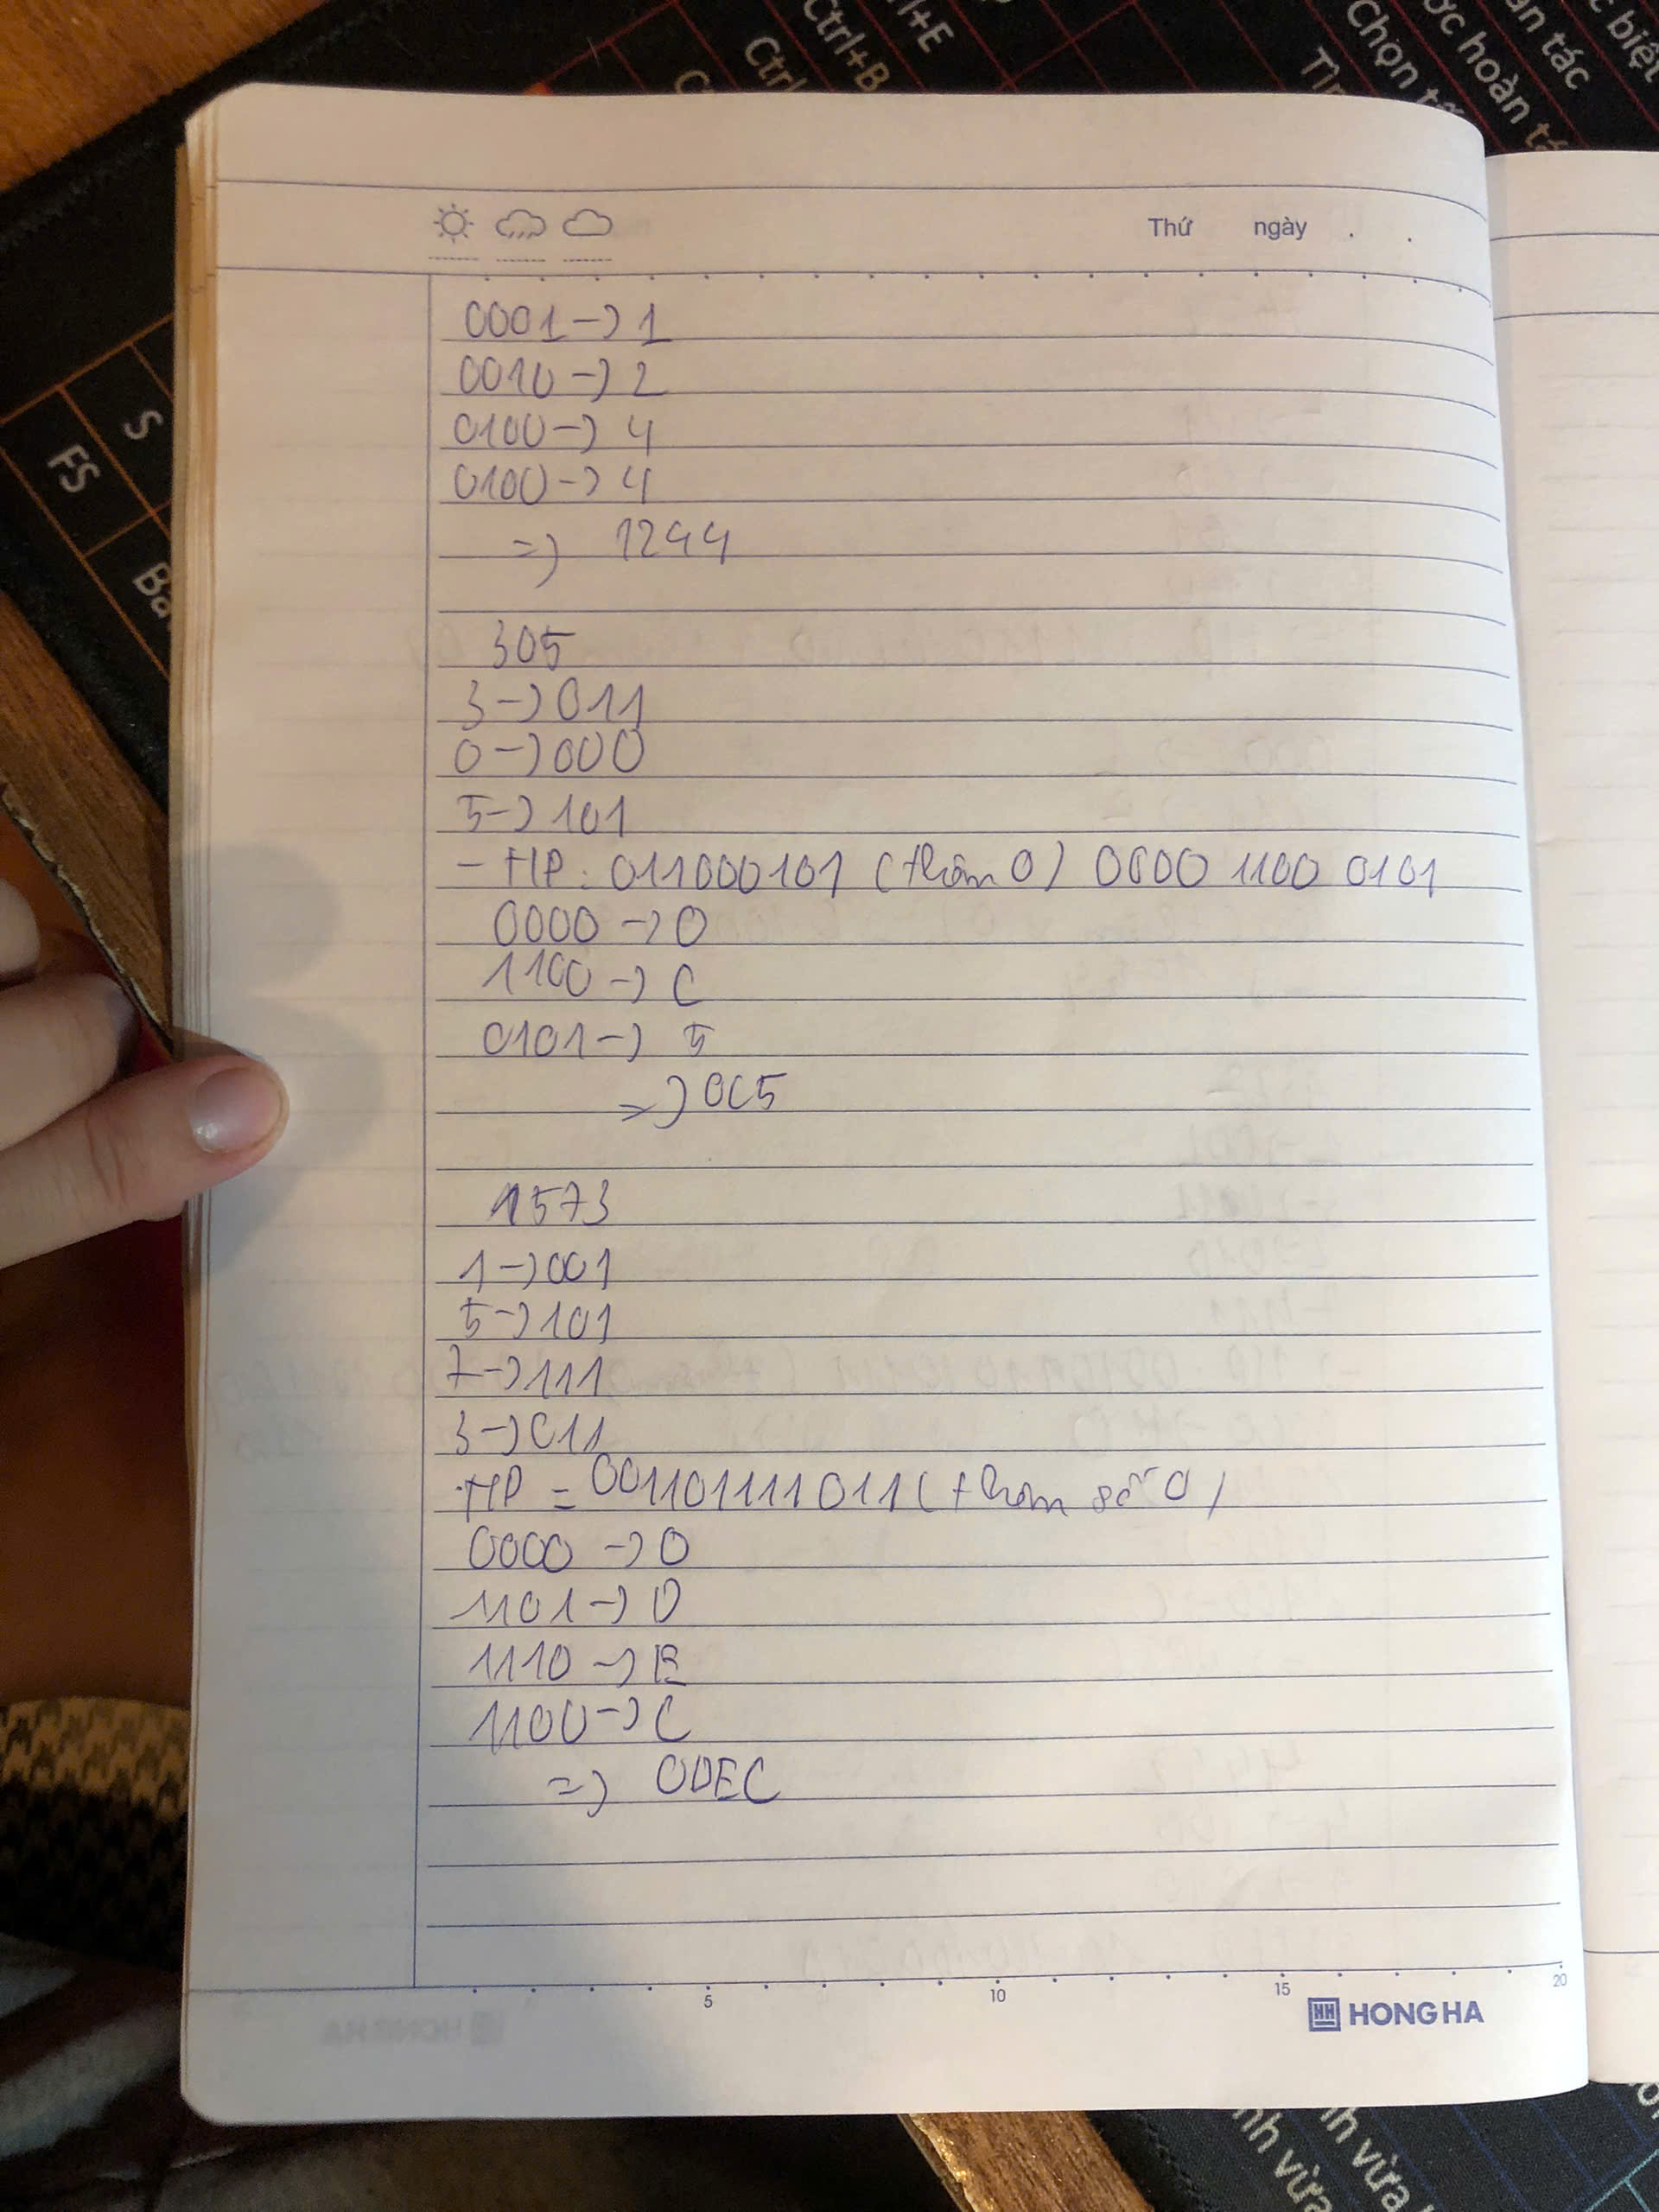 Ctrl+B
Ctrl+E
Chọn
hoàn
tác
biệt
FS
S
Thứ ngày . .
0001 -> 1
0010 -> 2
0100 -> 4
0100 -> 4
=> 1244
305
3 -> 011
0 -> 000
5 -> 101
- HP: 011000101 (thêm 0) 0000 1100 0101
0000 -> 0
1100 -> C
0101 -> 5
=> 0C5
1573
1 -> 001
5 -> 101
7 -> 111
3 -> 011
HP = 001101111011 (thêm số 0)
0000 -> 0
1101 -> D
1110 -> E
1100 -> C
=> 0DEC
5 10 15 20
HH HONG HA
vừa
vừa